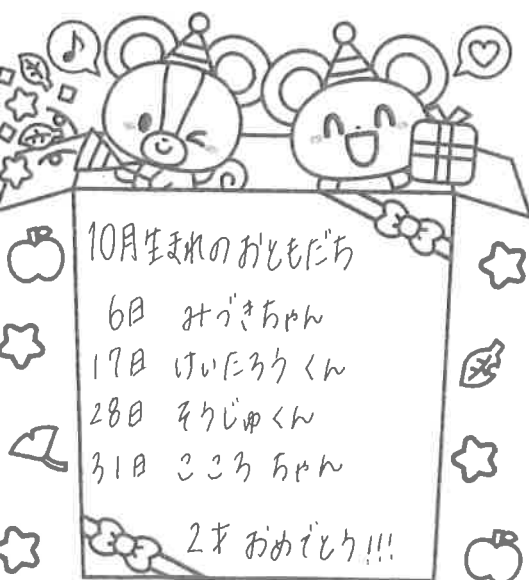 10月生まれのおともだち
6日 みづきちゃん
17日 けいたろうくん
28日 そうじゅくん
31日 こころちゃん
2才 おめでとう!!!